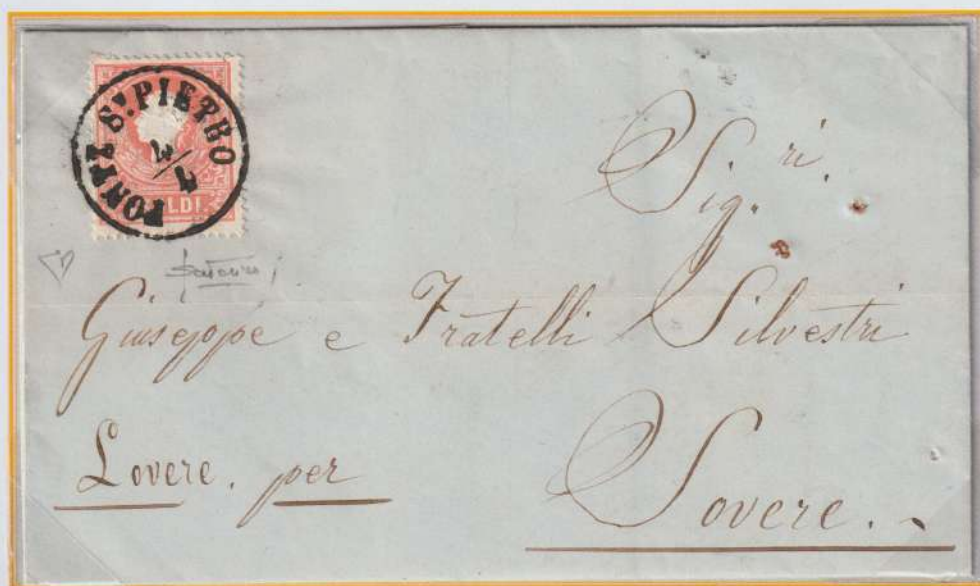 PONTE S.T PIETRO
3/4
LDI.
Sig.ri.
Giuseppe e Fratelli Silvestri
Lovere. per
Sovere.